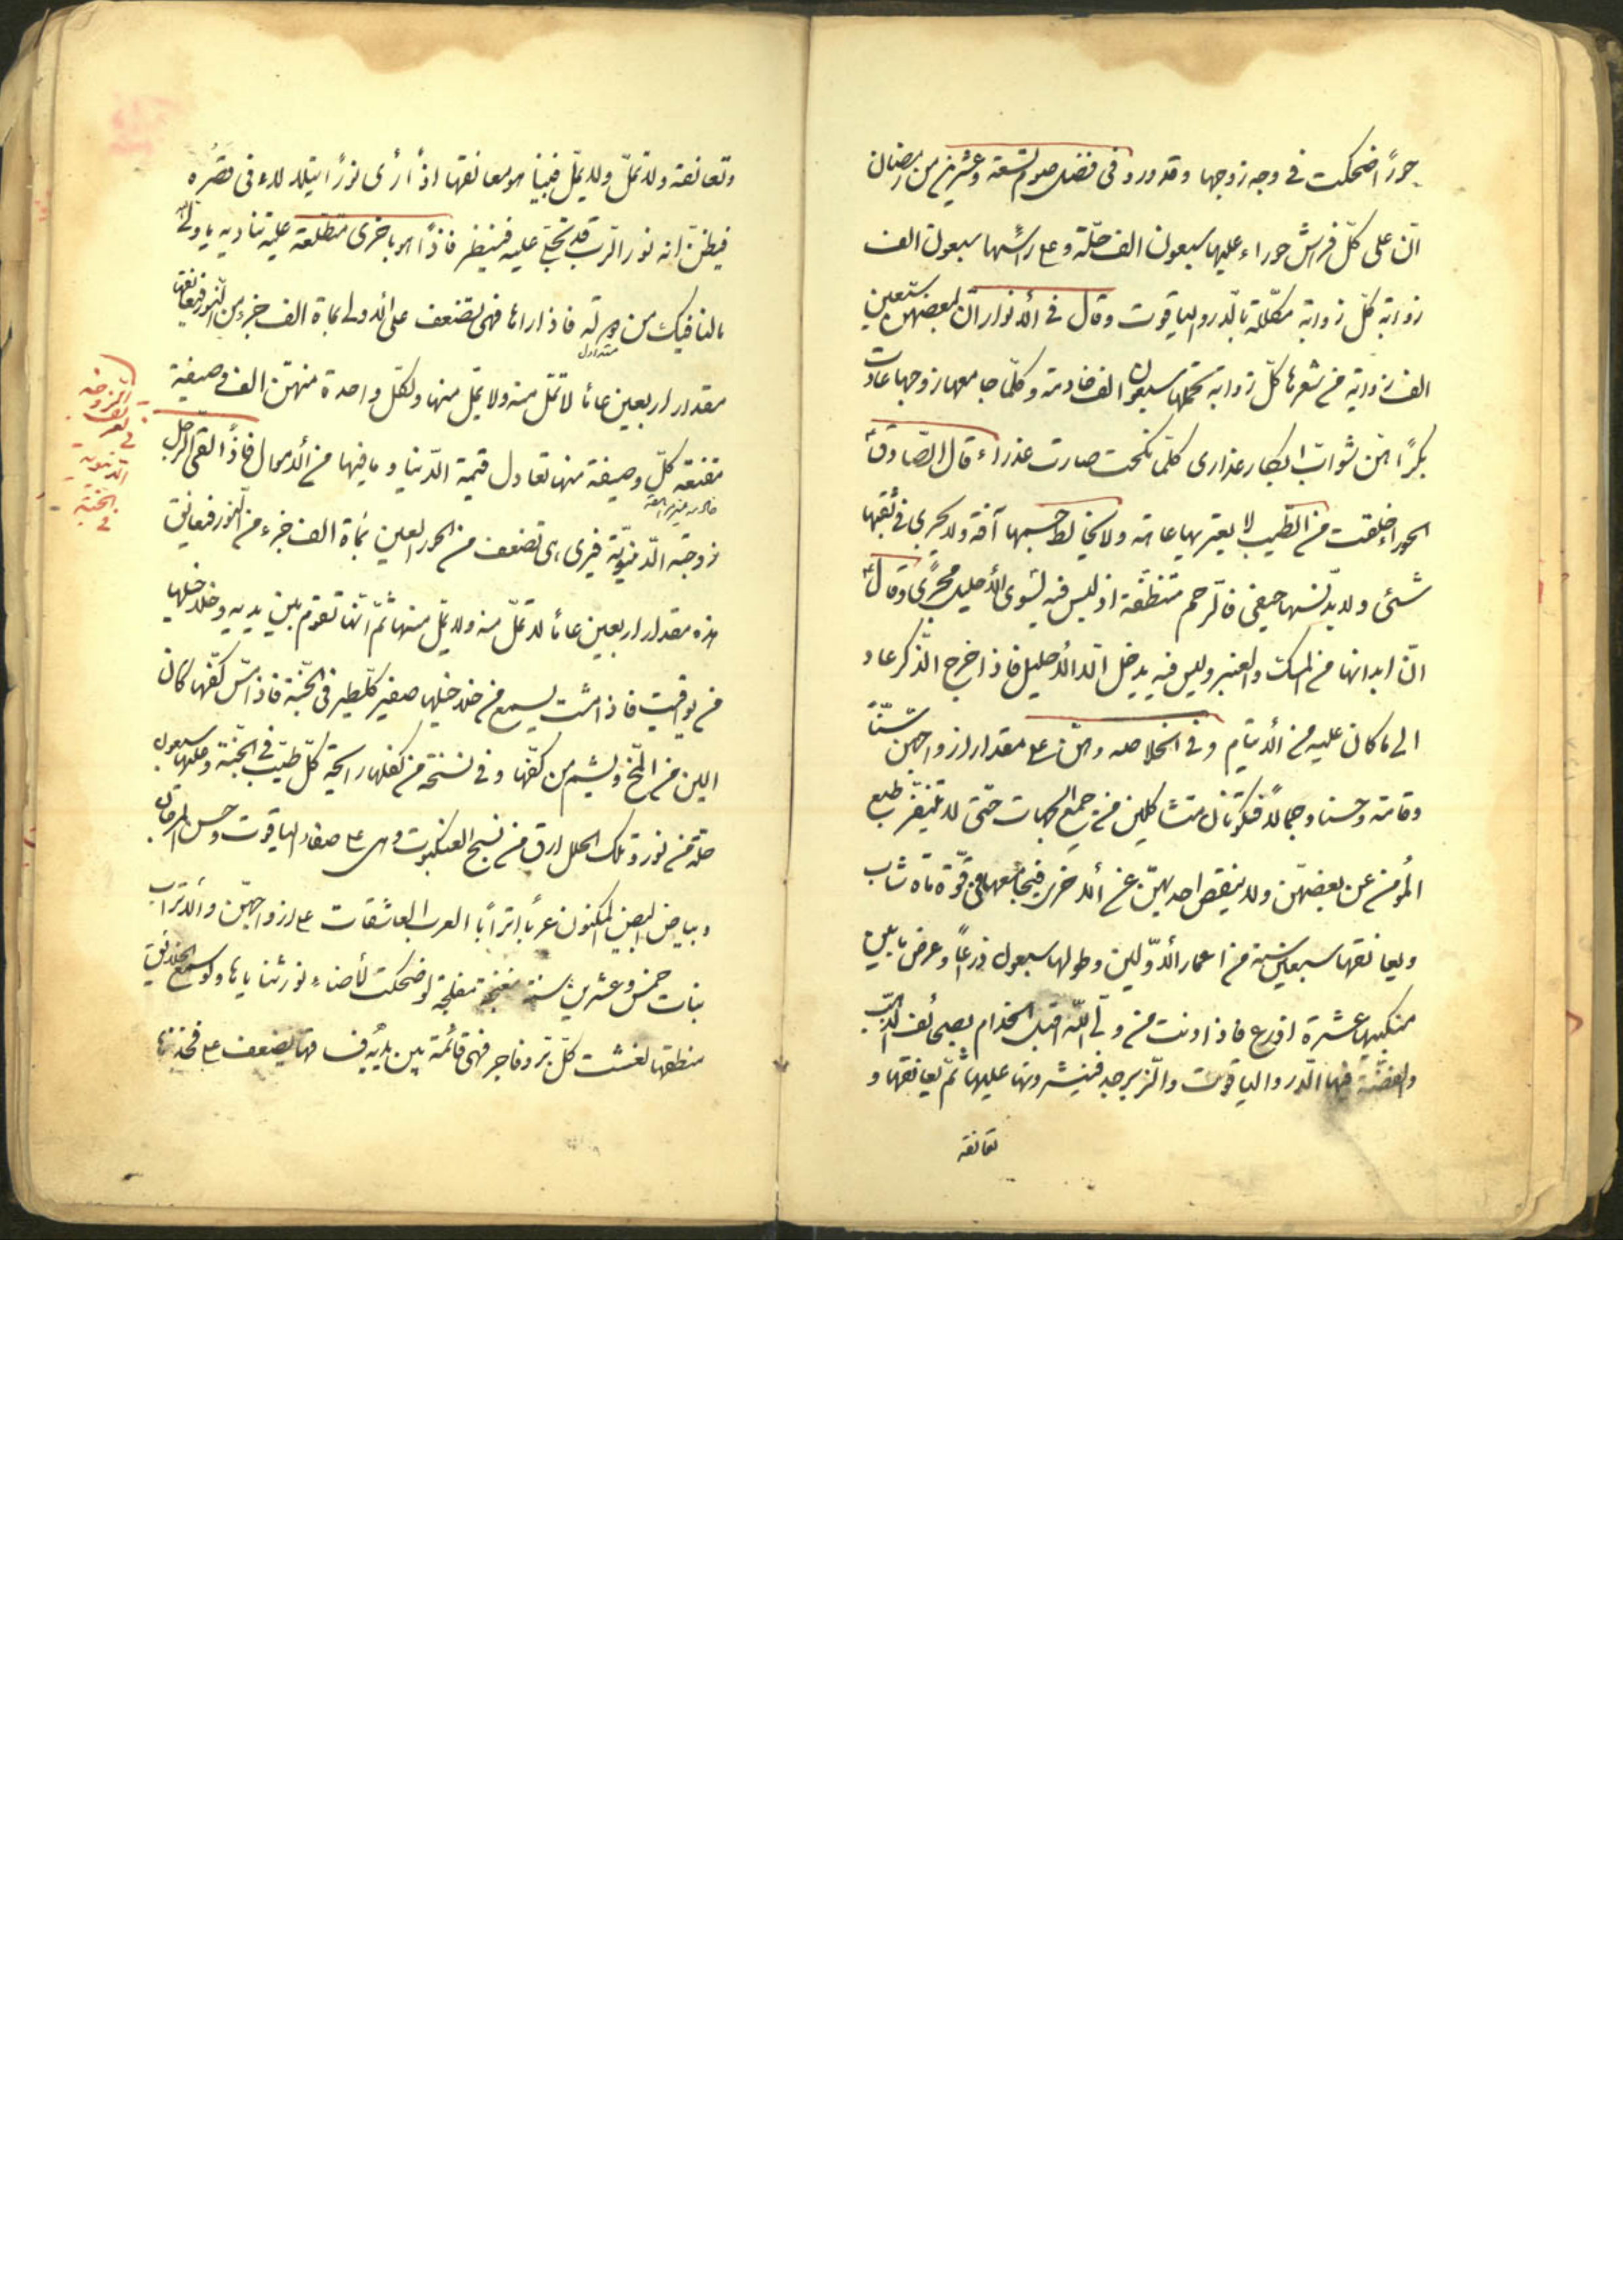 حورًا ضحكت فی وجه زوجها وقد ورد فی فضل صوم تسعة وعشرین من رمضان
انّ علی كلّ فراش حوراء علیها سبعون الف حلّة وعلی رأسها سبعون الف
زوابة كلّ زوابة مكلّلة بالدّر والیاقوت وقال فی الأنوار انّ لبعضهنّ سبعین
الف زوابة من شعرها كلّ زوابة تحملها سبعون الف خادمة وكلّما جامعها زوجها عادت
بكرًا لهنّ ثوابّ ابكار عذاری كلّما نكحت صارت عذراء قال الصّادق
الحوراء خلقت من الطّیب لا یعتریها عاهة ولا یخالط جسمها آفة ولا یجری فی ثقبها
شئی ولا یدنّسها حیض فالرحم متنظّفة اذ لیس فیه لسوی الأحلیل مجری وقال
انّ ابدانها من المسك والعنبر ولیس فیه یدخل الّا الأحلیل فاذا خرج الذّكر عاد
الی ما كان علیه من الألتیام وفی الخلاصه وهنّ علی مقدار ازواجهنّ سنّاً
وقامة وحسنا وجمالاً فتكونان متشاكلین من جمیع الجهات حتّی لا یتنفّر طبع
المؤمن عن بعضهنّ ولا ینقص احدیهنّ عن الأخری فیجامعها فی قوّة ماة شابّ
ویعانقها سبعین سنة من اعمار الأوّلین وطولها سبعون ذراعاً وعرض ما بین
منكبیها عشرة اذرع فاذا دنت من ولیّ اللّه اقبل الخدام بصحائف الذّهب
والفضّة فیها الدّر والیاقوت والزّبرجد فینثرونها علیها ثمّ یعانقها و
تعانقه
وتعانقه ولا تملّ ولا یملّ فبینا هو معانقها اذ رأی نورًا یتلألأ فی قصره
فیظنّ انه نور الرّب قد تجلّی علیه فینظر فاذا هو باخری متطلّعة علیه تنادیه یا ولیّ اللّه
ما لنا فیك من دولة فاذا رآها فهی تضعف علی الأولی بماة الف جزء من النّور فیعانقها
مقدار اربعین عاما لا تملّ منه ولا یملّ منها ولكلّ واحدة منهنّ الف وصیفة
مقنعة كلّ وصیفة منها تعادل قیمة الدّنیا وما فیها من الأموال فاذا القی الرجل
زوجته الدّنیویّة فیری هی تضعف من الحور العین بماة الف جزء من النّور فیعانق
هذه مقدار اربعین عاما لا تملّ منه ولا یملّ منها ثمّ انّها تقوم بین یدیه وخلاخلها
من یواقیت فاذا مشت یسمع من خلاخیلها صفیر كلّ طیر فی الجنّة فاذا مسّ كفّها كان
الین من المخّ ویشمّ من كفّها وفی نسخة من كفلها رایحة كلّ طیب فی الجنّة وعلیها سبعون
حلة من نور وتلك الحلل ارق من نسج العنكبوت وهی علی صفاء الیاقوت وحسن المرجان
وبیاض البیض المكنون عربًا اترابًا العرب العاشقات علی ازواجهنّ والأتراب
بنات خمس وعشرین سنة مغنجة مفلجة لو ضحكت لأضاء نور ثنایاها ولو سمع الخلایق
منطقها لغشت كلّ برّ وفاجر فهی قائمة بین یدیه فی
متداول
تعریف الزوجة
الدنیویة
فی الجنّة